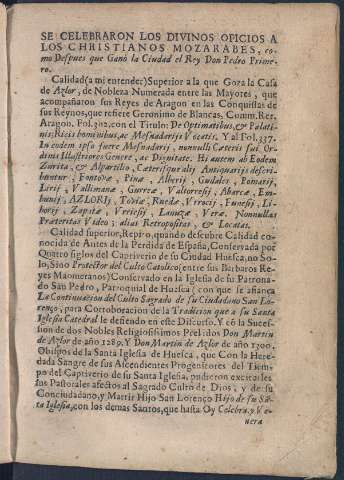 SE CELEBRARON LOS DIVINOS OFICIOS A
LOS CHRISTIANOS MOZARABES, co-
mo Despues que Ganò la Ciudad el Rey Don Pedro Prime-
ro.
Calidad (a mi entender) Superior a la que Goza la Casa
de Azlor, de Nobleza Numerada entre las Mayores, que
acompañaron sus Reyes de Aragon en las Conquistas de
sus Reynos, que refiere Geronimo de Blancas, Comm. Rer.
Aragon. Fol. 302, con el Titulo: De Optimatibus, & Palati-
nis; Ricis hominibus, ac Mesnadarijs Vocatis, Y al Fol. 337.
In eodem ipso fuere Mesnadarij, nonnulli Cæteris sui Or-
dinis Illustriores Genere, ac Dignitate. Hi autem ab Eodem
Zurita, & Alpartilio, Cæterisquè alij Antiquarijs describi-
buntur, Fontovæ, Pinæ, Alberij, Guidales, Pomarij,
Lirij, Vallimanæ, Gurreæ, Valtorresij, Abarcæ, Em-
bunij, AZLORII, Toviæ, Ruedæ, Vrrocij, Funesij, Li-
horij, Zapatæ, Vrriesij, Lanuzæ, Veræ. Nonnullas
Præteritas Video; alias Retropositas, & Locatas.
Calidad superior, Repito, quando descubre Calidad co-
nocida de Antes de la Perdida de España, Conservada por
Quatro siglos del Captiverio de su Ciudad Huesca, no So-
lo, Sino Protector del Culto Catolico, entre sus Barbaros Re-
yes Maometanos; Conservado en la Iglesia de su Patrona-
do San Pedro, Parroquial de Huesca; con que se afiança
La Continuacion del Culto Sagrado de su Ciudadano San Lo-
renço, para Corroboracion de la Tradicion que a su Santa
Iglesia Catedral le defiendo en este Discurso. Y cō la Suces-
sion de dos Nobles Religiosissimos Prelados Don Martin
de Azlor de año 1289. Y Don Martin de Azlor de año 1300.
Obispos de la Santa Iglesia de Huesca, que Con la Here-
dada Sangre de sus Ascendientes Progenitores del Tiem-
po del Captiverio de su Santa Iglesia, pudieron excitarles
sus Pastorales afectos al Sagrado Culto de Dios, y de su
Conciudadano, y Martir Hijo San Lorenço Hijo de su Sã-
ta Iglesia, con los demas Santos, que hasta Oy Celebra, y Ve-
nera